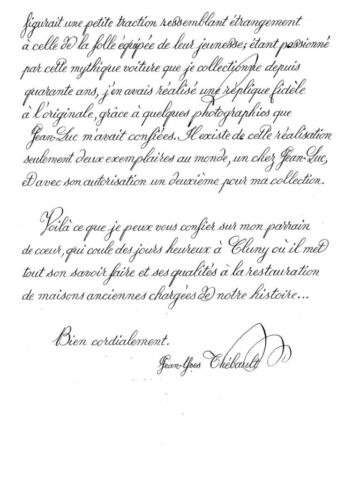 figurait une petite traction ressemblant étrangement
à celle de la folle équipée de leur jeunesse; étant passionné
par cette mythique voiture que je collectionne depuis
quarante ans, j'en avais réalisé une réplique fidèle
à l'originale, grâce à quelques photographies que
Jean-Luc m'avait confiées. Il existe de cette réalisation
seulement deux exemplaires au monde, un chez Jean-Luc,
et avec son autorisation un deuxième pour ma collection.
Voilà ce que je peux vous confier sur mon parrain
de cœur, qui coule des jours heureux à Cluny où il met
tout son savoir faire et ses qualités à la restauration
de maisons anciennes chargées de notre histoire...
Bien cordialement.
Jean-Yves Thébault